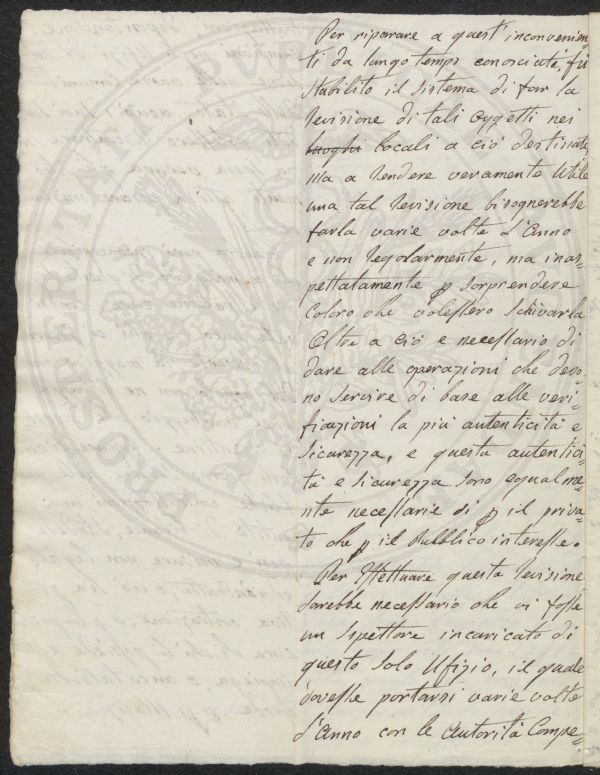 Per riparare a quest' inconvenien-
ti da lungo tempo conosciuti, fù
stabilito il sistema di far la
revisione di tali oggetti nei
luoghi locali a ciò destinati
ma a rendere veramente utile
una tal revisione bisognerebbe
farla varie volte l'Anno
e non regolarmente, ma inas-
pettatamente p sorprendere
coloro che volessero schivarla
Oltre a ciò e necessario di
dare alle operazioni che devo-
no servire di base alle veri-
ficazioni la più autenticità e
sicurezza, e questa autentici-
tà e sicurezza sono egualme-
nte necessarie di p il priva-
to che p il Pubblico interesse.
Per Effettuare questa revisione
sarebbe necessario che vi fosse
un Ispettore incaricato di
questo solo Ufizio, il quale
dovesse portarsi varie volte
l'Anno con le Autorità Compe-